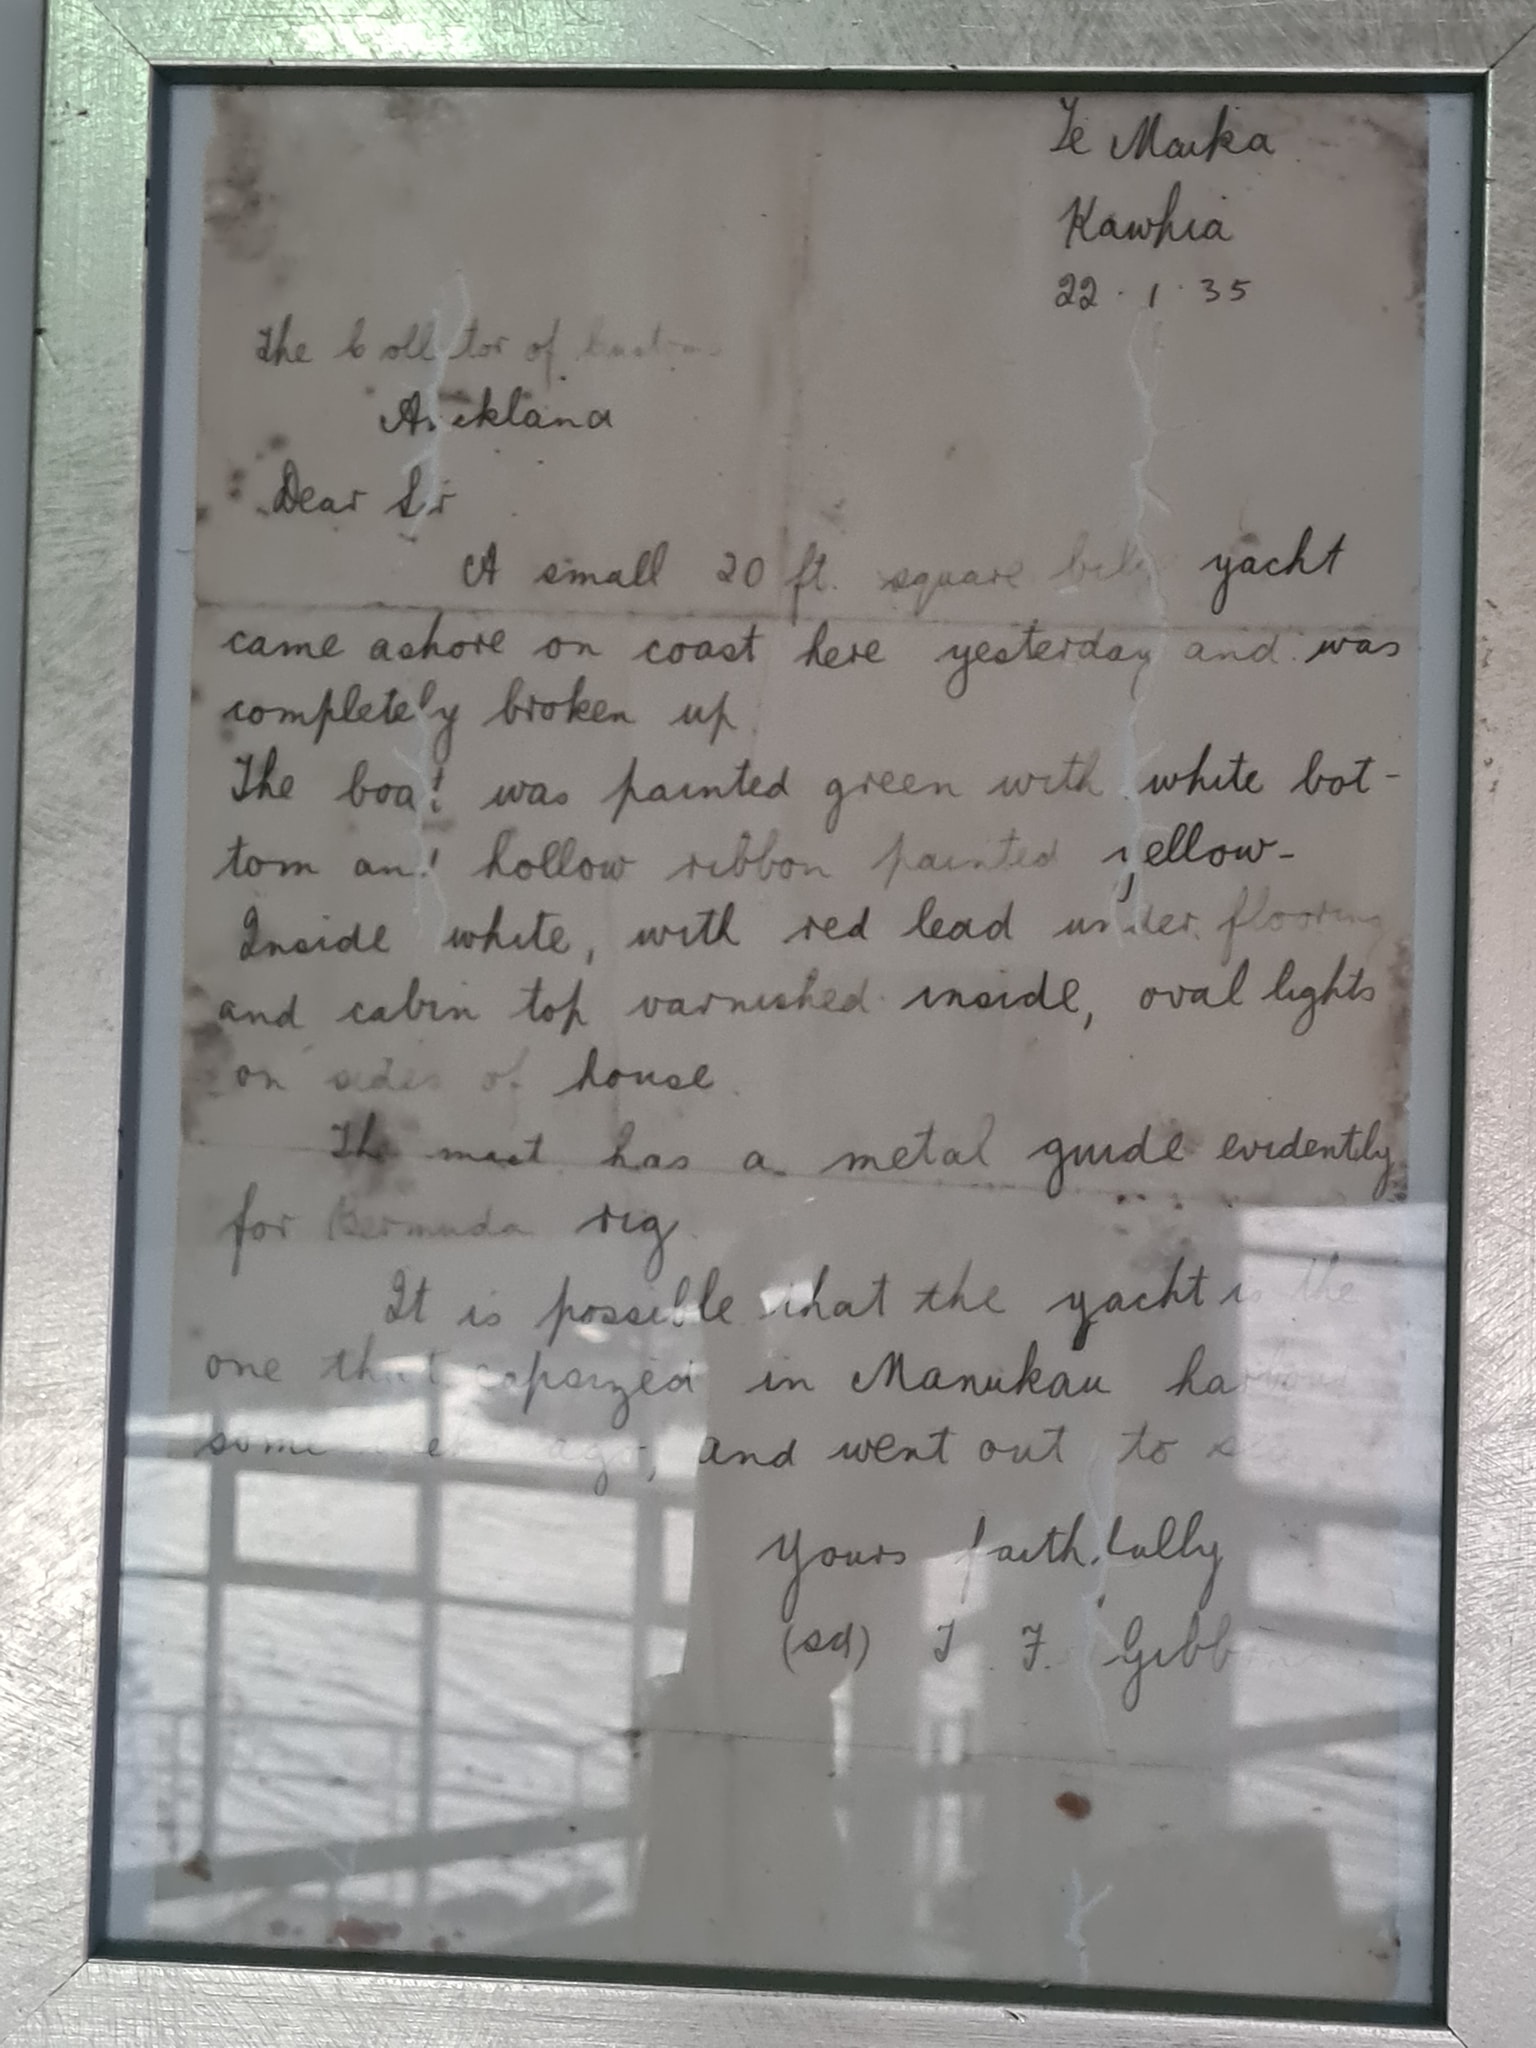 Te Maika
Kawhia
22.1.35
The Collector of Customs
Auckland
Dear Sir
A small 20 ft. square yacht
came ashore on coast here yesterday and was
completely broken up.
The boat was painted green with white bot-
tom and hollow ribbon painted yellow-
Inside white, with red lead under flooring
and cabin top varnished inside, oval lights
on sides of house.
The mast has a metal guide evidently
for Bermuda rig.
It is possible that the yacht is the
one that capsized in Manukau harbour
some ago, and went out to sea
Yours faithfully
(sd) F.